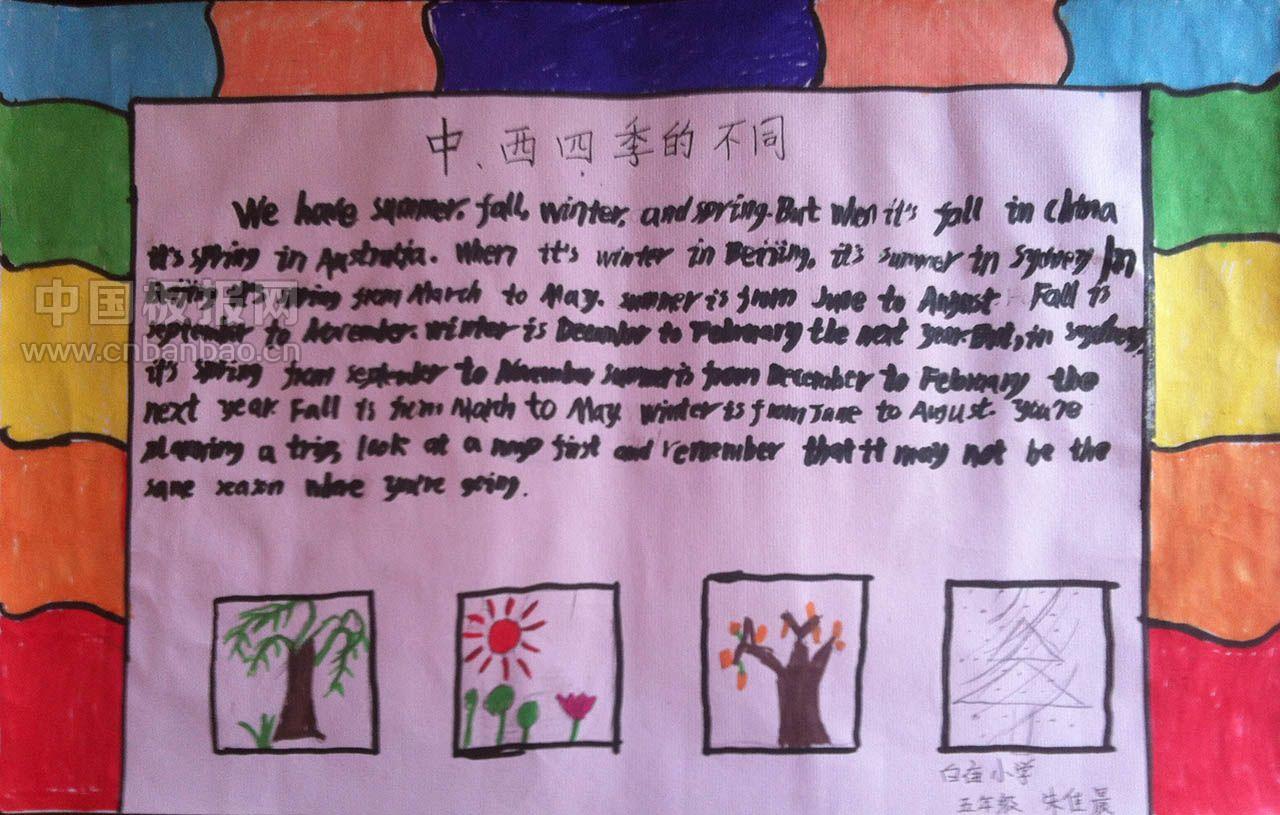 中、西四季的不同
We have summer, fall, winter, and spring. But when it's fall in China
it's spring in Australia. When it's winter in Beijing, it's summer in Sydney In
Beijing it's spring from March to May. summer is from June to August Fall is
september to November. winter is December to February the next year. But, in sydney,
it's spring from september to November summer is from December to February the
next year Fall is from March to May winter is from June to August. you're
planning a trip, look at a map first and remember that it may not be the
same season where you're going.
中国板报网
www.cnbanbao.cn
小学
五年级 朱佳晨